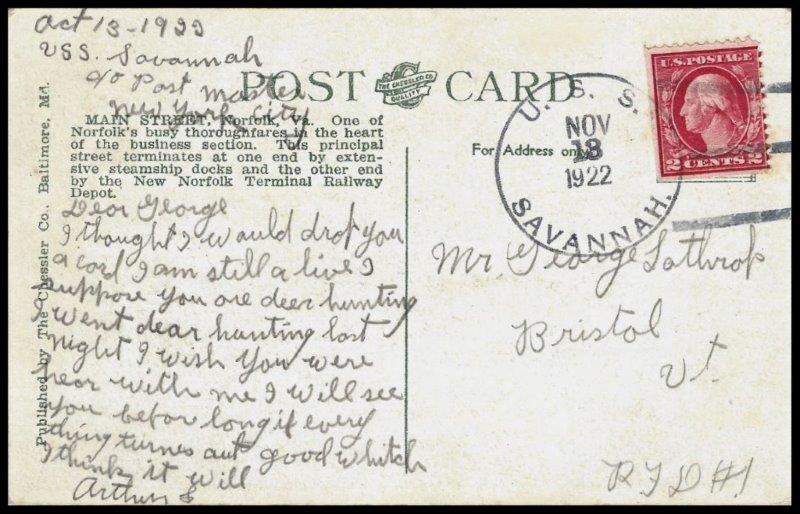 Oct 13-1922
USS. Savannah
c/o Post Master
New York City
POST CARD
THE CHESSLER CO.
QUALITY
MAIN STREET, Norfolk, Va. One of
Norfolk's busy thoroughfares in the heart
of the business section. This principal
street terminates at one end by exten-
sive steamship docks and the other end
by the New Norfolk Terminal Railway
Depot.
Dear George
I thought I would drop you
a cord I am still a live I
suppore you are deer hunting
I went dear hunting last
night I wish you were
hear with me I will see
you befor long if every
thing turnes out good whitch
I think it will
Arthur
Published by The Chessler Co., Baltimore, Md.
For Address only
U. S. S.
NOV
13
1922
SAVANNAH.
U.S. POSTAGE
2 CENTS 2
Mr. George Lathrop
Bristol
Vt.
RFD #1